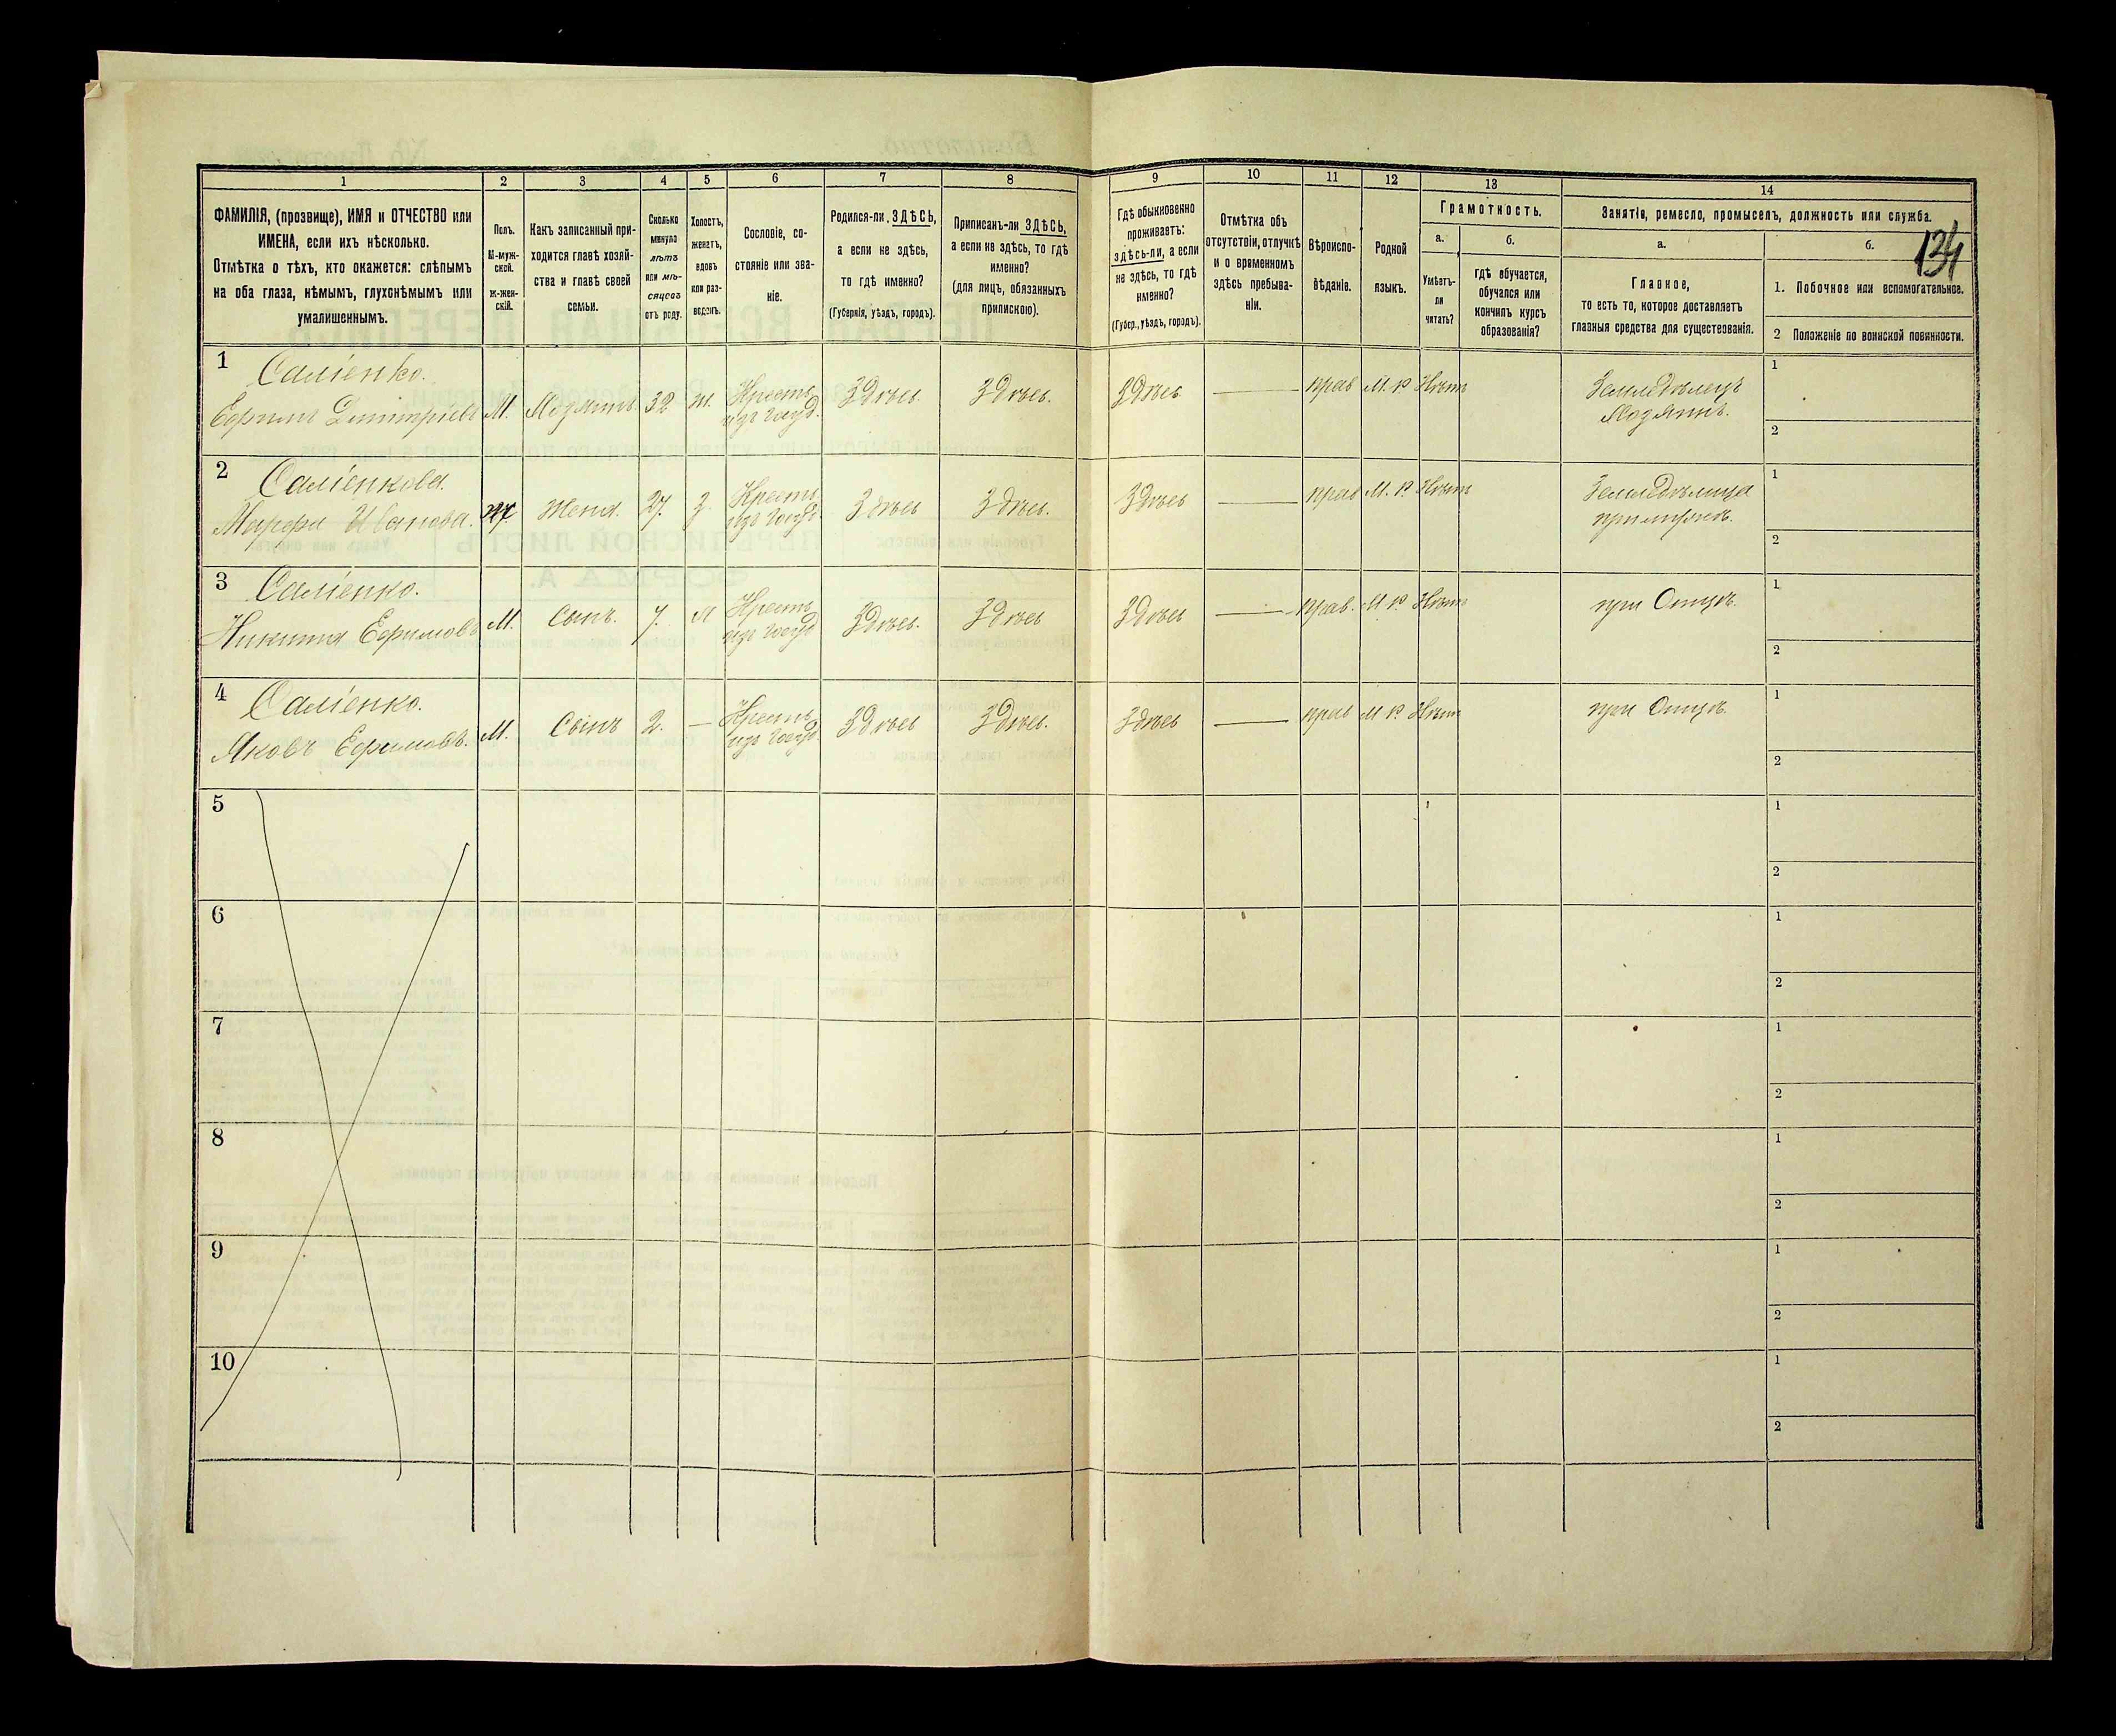 134
1
2
3
4
5
6
7
8
9
10
11
12
13
14
ФАМИЛІЯ, (прозвище), ИМЯ и ОТЧЕСТВО или
ИМЕНА, если ихъ нѣсколько.
Отмѣтка о тѣхъ, кто окажется: слѣпымъ
на оба глаза, нѣмымъ, глухонѣмымъ или
умалишеннымъ.
Полъ.
М-муж-
ской.
ж-жен-
скій.
Какъ записанный при-
ходится главѣ хозяй-
ства и главѣ своей
семьи.
Сколько
минуло
лѣтъ
или мѣ-
сяцевъ
отъ роду.
Холостъ,
женатъ,
вдовъ
или раз-
веденъ.
Сословіе, со-
стояніе или зва-
ніе.
Родился-ли ЗДѢСЬ,
а если не здѣсь,
то гдѣ именно?
(Губернія, уѣздъ, городъ).
Приписанъ-ли ЗДѢСЬ,
а если не здѣсь, то гдѣ
именно?
(для лицъ, обязанныхъ
припискою).
Гдѣ обыкновенно
проживаетъ:
здѣсь-ли, а если
не здѣсь, то гдѣ
именно?
(Губер., уѣздъ, городъ).
Отмѣтка объ
отсутствіи, отлучкѣ
и о временномъ
здѣсь пребыва-
ніи.
Вѣроиспо-
вѣданіе.
Родной
языкъ.
Грамотность.
а.
Умѣетъ-
ли
читать?
б.
гдѣ обучается,
обучался или
кончилъ курсъ
образованія?
Занятія, ремесло, промыселъ, должность или служба.
а.
Главное,
то есть то, которое доставляетъ
главныя средства для существованія.
б.
1. Побочное или вспомогательное.
2 Положеніе по воинской повинности.
1
Саліенко.
Ефимъ Дмитріевъ М. Хозяинъ 32 ж. Кресть. изъ госуд. Здѣсь Здѣсь. Здѣсь — прав М. Р Нѣтъ Земледѣлецъ
Хозяинъ.
1
2
2
Саліенкова.
Марфа Иванова. Ж Жена. 27. з. Кресть. изъ госуд. Здѣсь Здѣсь. Здѣсь — прав М. Р. Нѣтъ Земледѣлица
при мужѣ.
1
2
3
Саліенко.
Никита Ефимовъ М. Сынъ. 7. Кресть. изъ госуд Здѣсь. Здѣсь Здѣсь — прав. М Р Нѣтъ при Отцѣ.
1
2
4
Саліенко.
Яковъ Ефимовъ. М. Сынъ 2. — Кресть. изъ госуд Здѣсь Здѣсь. Здѣсь — прав М Р Нѣтъ при Отцѣ.
1
2
5
1
2
6
1
2
7
1
2
8
1
2
9
1
2
10
1
2